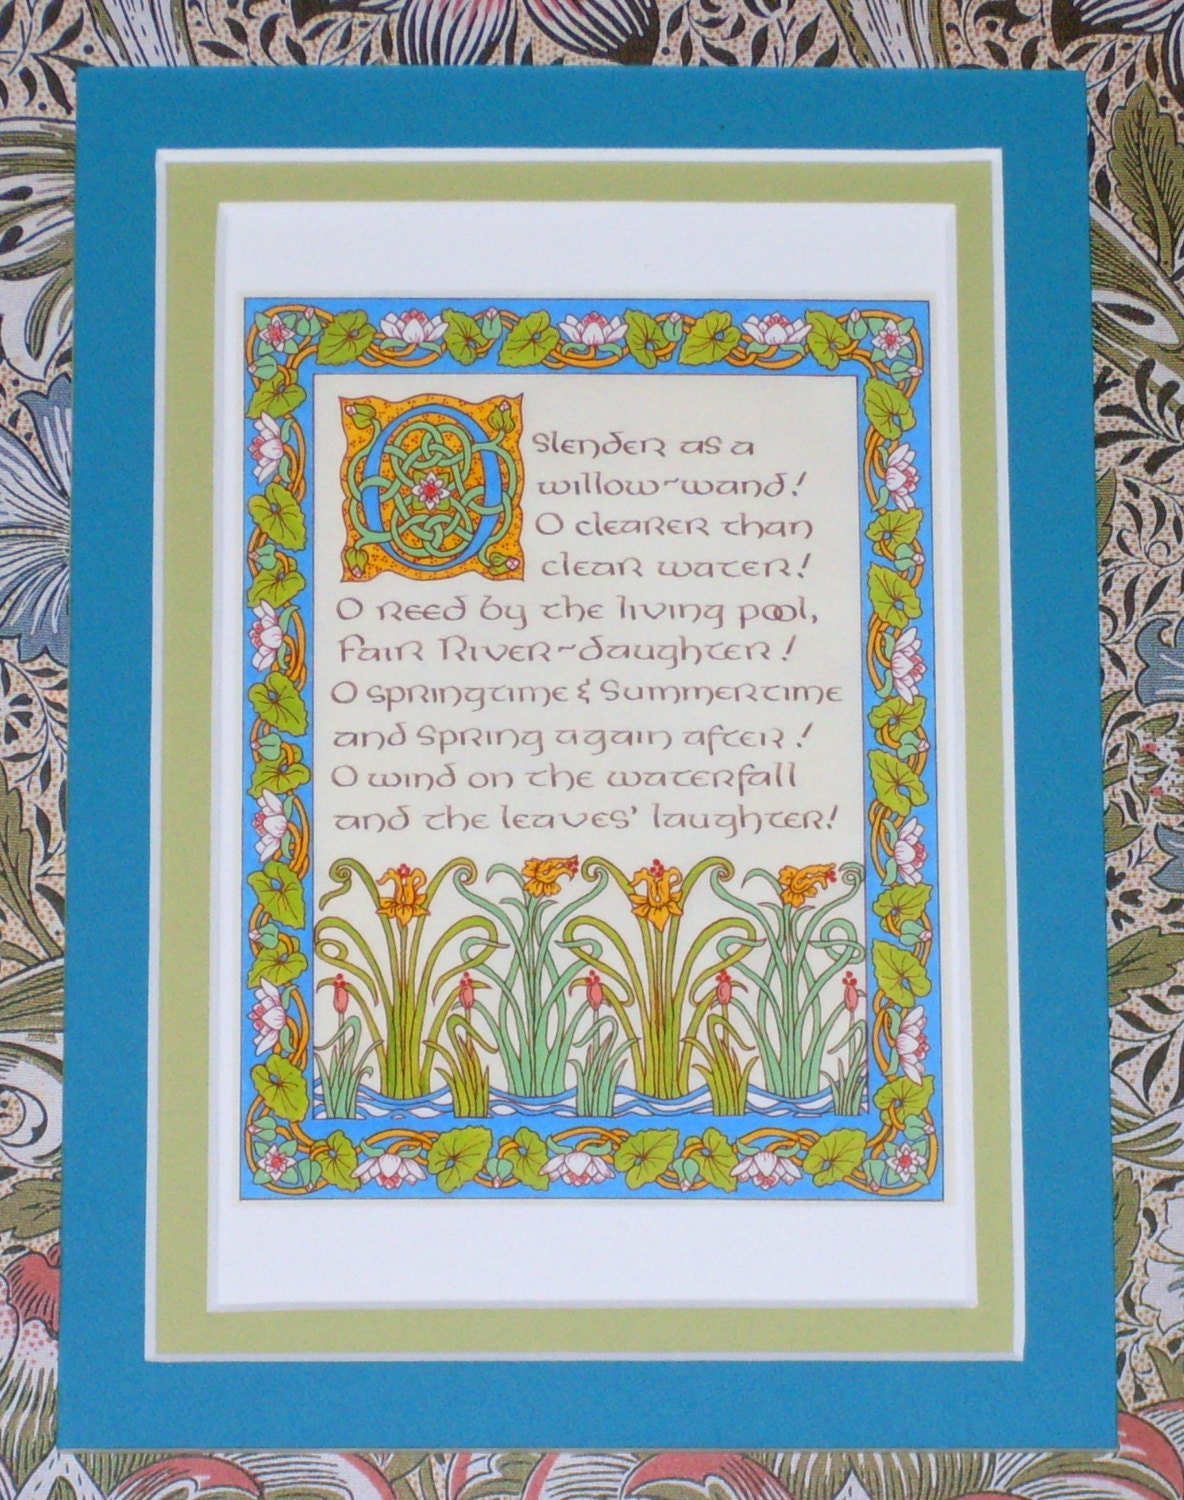 O slender as a
willow~wand!
O clearer than
clear water!
O reed by the living pool,
Fair River~daughter!
O springtime & Summertime
and Spring again after!
O wind on the waterfall
and the leaves' laughter!